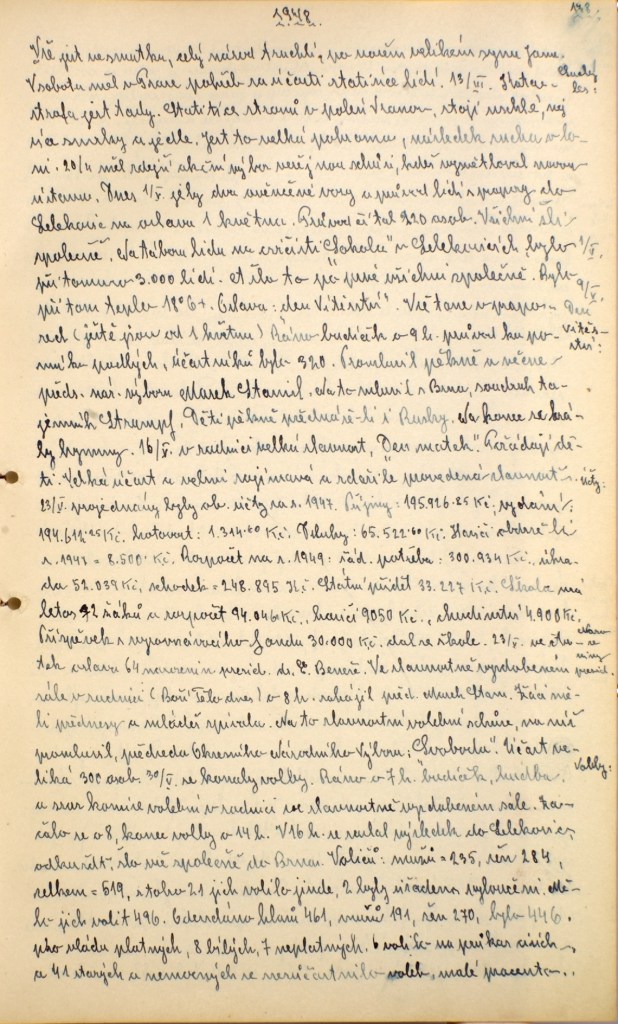 1948.
148.
Vše jest ve smutku, celý národ truchlí, po našem velikém synu Janu.
V sobotu měl v Praze pohřeb za účasti statisíce lidí. 13/III. Kata-
Suchý les:
strofa jest tady. Statisíce stromů v polesí Vranov, stojí uschlé, nej
více smrky a jedle. Jest to velká pohroma, následek sucha v lo-
ni. 20/4 měl zdejší akční výbor veřejnou schůzi, kdež vysvětloval novou
ústavu. Dnes 1/V. jely dva ověnčené vozy a průvod lidí s prapory do
Lelekovic na oslavu 1 května. Průvod čítal 220 osob. Všichni šli
společně. Na táboru lidu na cvičišti "Sokola" v Lelekovicích, bylo
1/V.
přítomno 3.000 lidí. A šlo to po prvé všichni společně. Bylo
při tom teplo 18°C+. Oslava: den Vítězství". Vše tone v prapo-
9/V. Den vítěz-
rech (ještě jsou od 1 května) Ráno budíček o 9 h. průvod ku po-
ství:
mníku padlých, účastníků bylo 320. Promluvil pěkně a věcně
předs. nár. výboru Marek Stanisl. Na to mluvil z Brna, soudruh ta-
jemník Strumpf. Děti pěkně přednáše-li i Rusky. Na konec se hrá-
ly hymny. 16/V. v radnici velká slavnost, "Den matek". Pořádají dě-
ti. Velká účast a velmi zajímavá a zdařile provedená slavnost.
účty:
23/V. projednány byly ob. účty za r. 1947. Příjmy: 195.926.85 Kč, vydání:
194.612.25 Kč. hotovost: 1.314.60 Kč. Dluhy: 65.522.60 Kč. Hasiči obdrže-li
r. 1947 = 8.500. Kč. Rozpočet na r. 1949: řád. potřeba: 300.934 Kč., úhra-
da 52.039 Kč, schodek = 248.895 Kč. Státní příděl 33.227 Kč. Škola má
letos 42 žáků a rozpočet 94.046 Kč., hasiči 9050 Kč., chudinství 4.900 Kč.
Příspěvek z vyrovnávacího fondu 30.000 Kč. dal se škole. 23/V. ve
Naro-
ze-
niny
presid.
tek oslava 64 narozenin presid. dr. E. Beneše. Ve slavnostně vyzdobeném
sále v radnici (Boží Tělo dnes) o 8 h. zahájil před. Marek Stan. Žáci mě-
li přednesy a mládež zpívala. Na to slavnostní volební schůze, na níž
promluvil, předseda Okresního Národního Výboru: "Svoboda". Účast ve-
liká 300 osob. 30/V. se konaly volby. Ráno o 7 h. budíček, hudba
Volby:
a sraz komise volební v radnici ve slavnostně vyzdobeném sále. Za-
čalo se o 8, konec volby o 14 h. V 16 h. se zaslal výsledek do Lelekovic,
odkudž šlo vše společně do Brna. Voličů: mužů = 235, žen 284,
celkem = 519, z toho 21 jich volilo jinde, 2 byly úřadem vyloučeni. Mě-
lo jich volit 496. Odevzdáno hlasů 461, mužů 191, žen 270, bylo 446.
pro vládu platných, 8 bílých, 7 neplatných. 6 volilo na průkaz cizích
a 41 starých a nemocných se nezúčastnilo voleb, malé procento..